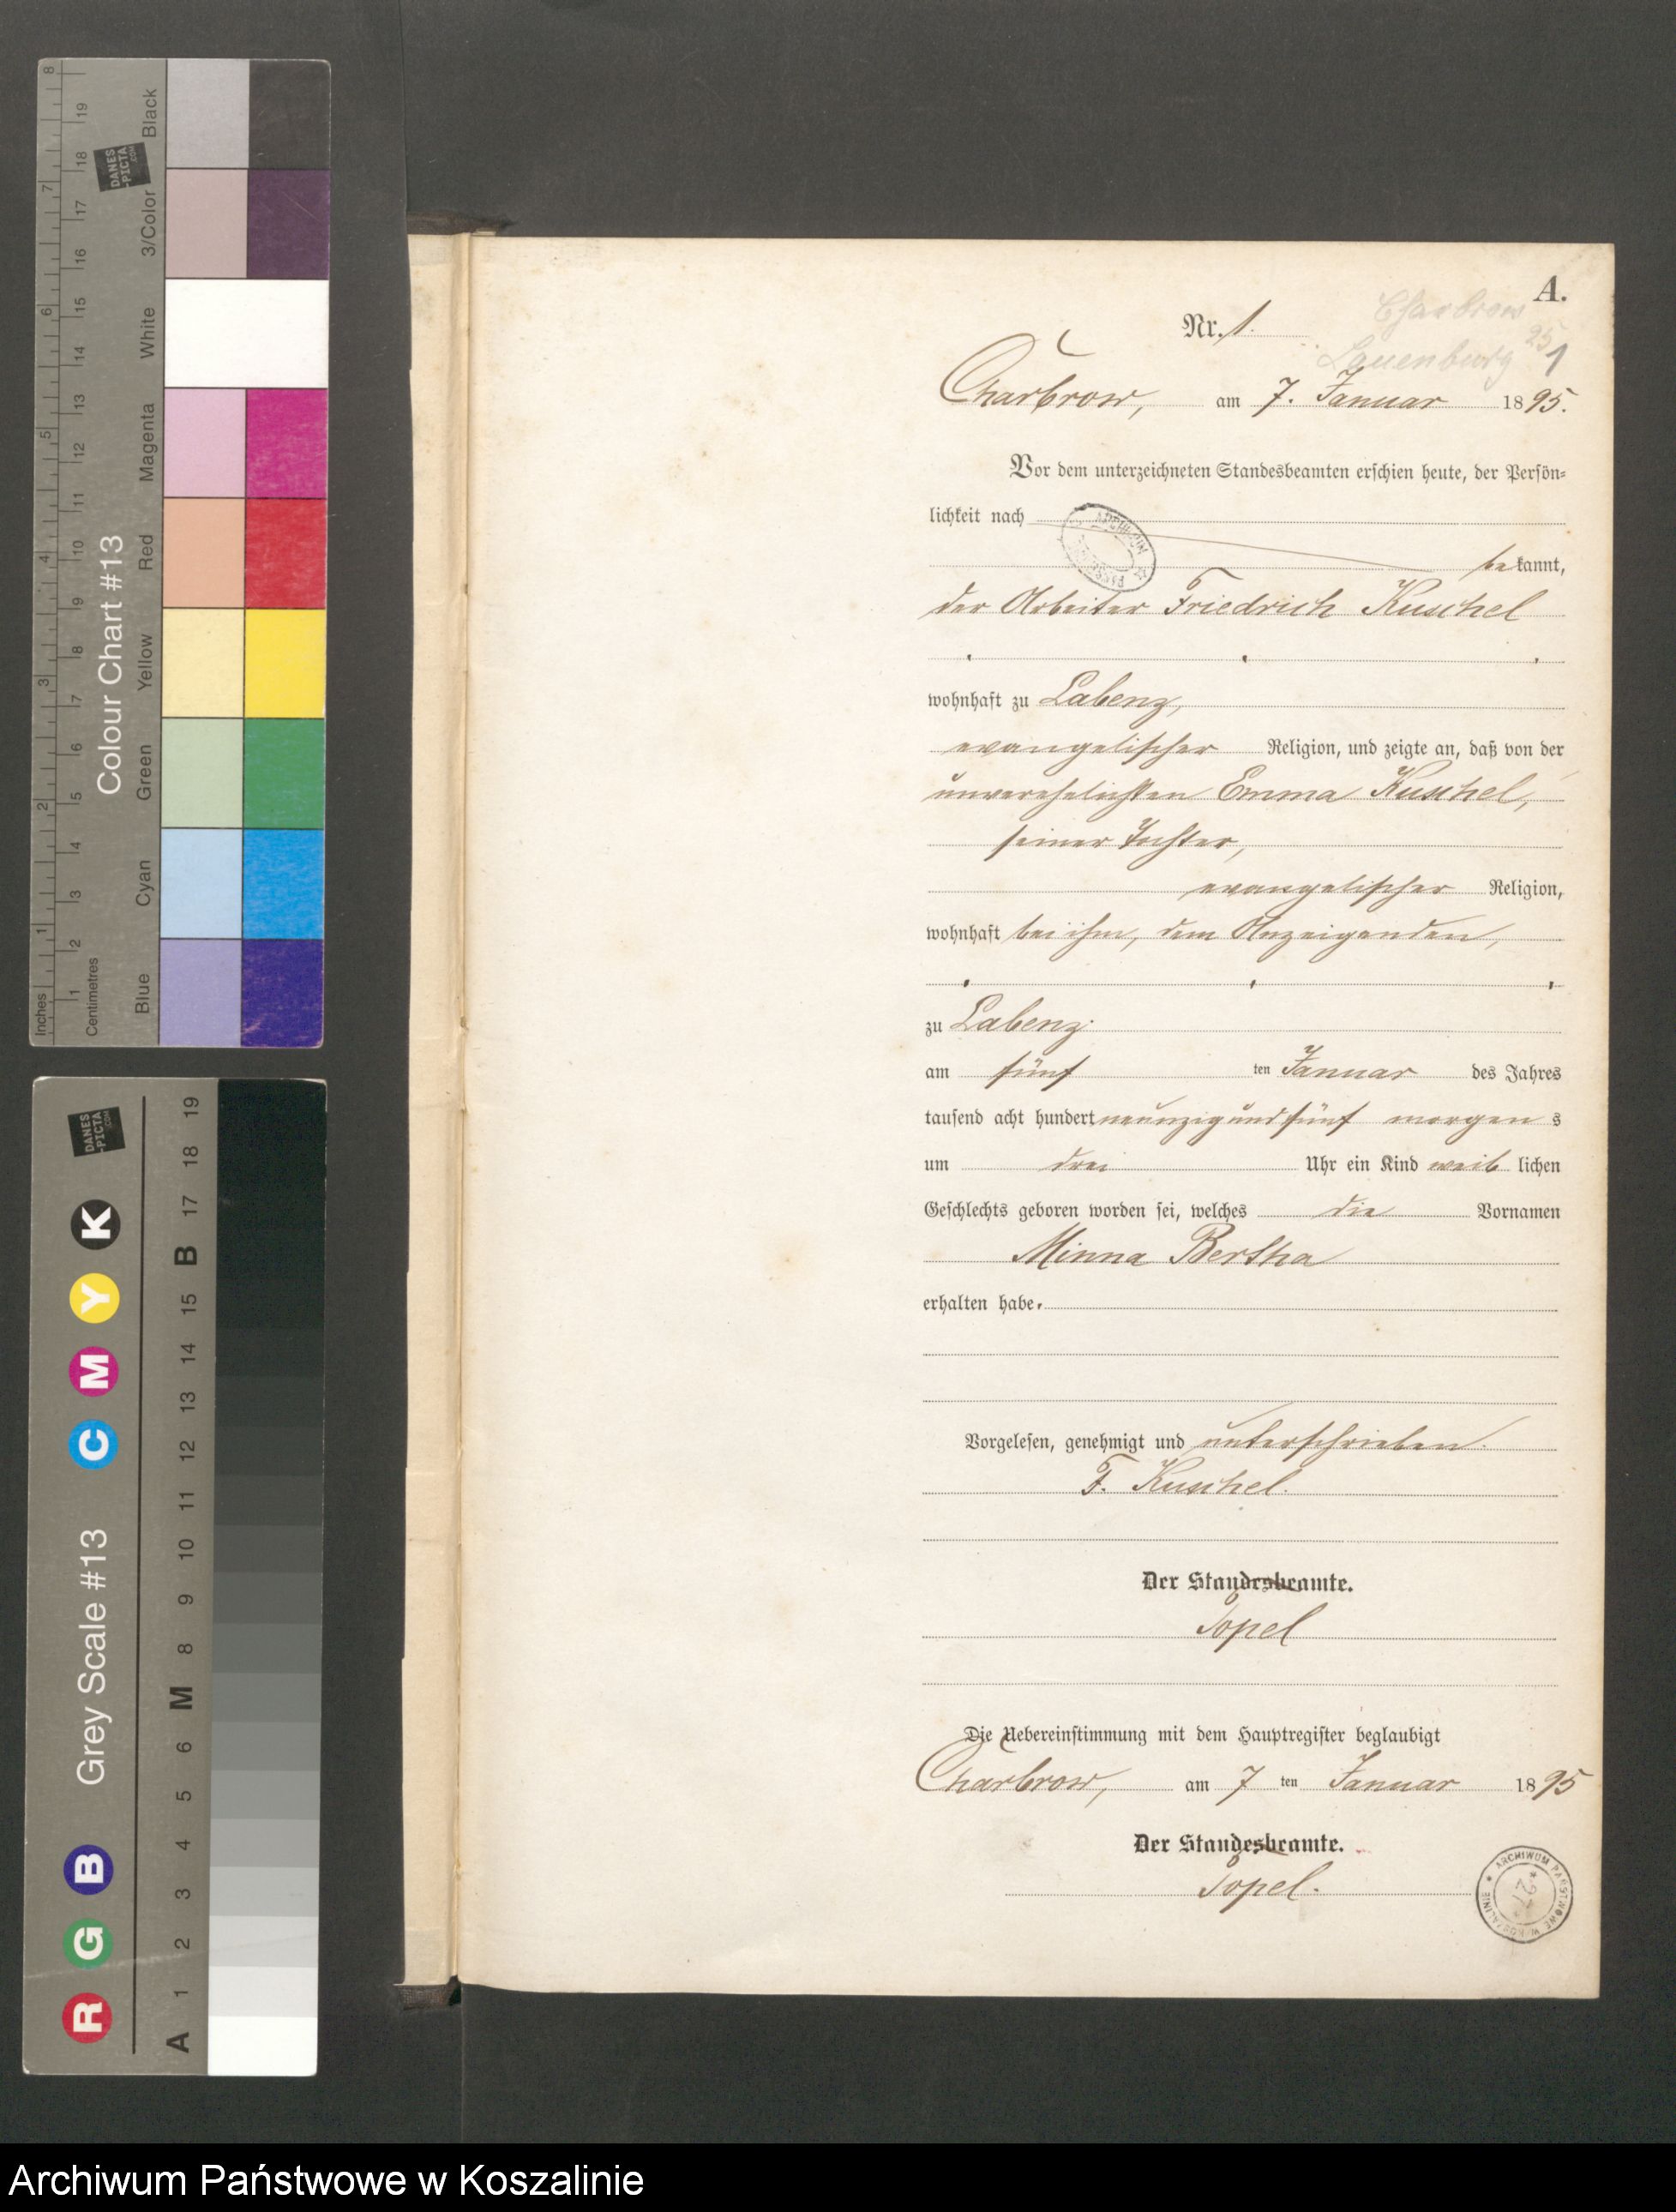 A.
Charbrow
Lauenburg 25
1
Nr. 1.
Charbrow, am 7. Januar 1895.
Vor dem unterzeichneten Standesbeamten erschien heute, der Persön-
lichkeit nach
bekannt,
der Arbeiter Friedrich Kuschel
wohnhaft zu Labenz,
evangelischer Religion, und zeigte an, daß von der
unverehelichten Emma Kuschel,
seiner Tochter,
evangelischer Religion,
wohnhaft bei ihm, dem Anzeigenden,
zu Labenz
am fünf ten Januar des Jahres
tausend acht hundert neunzig und fünf morgens
um drei Uhr ein Kind weiblichen
Geschlechts geboren worden sei, welches die Vornamen
Minna Bertha
erhalten habe.
Vorgelesen, genehmigt und unterschrieben.
F. Kuschel.
Der Standesbeamte.
Topel
Die Uebereinstimmung mit dem Hauptregister beglaubigt
Charbrow, am 7 ten Januar 1895
Der Standesbeamte.
Topel.
ARCHIWUM PAŃSTWOWE W KOSZALINIE
27
Colour Chart #13
Inches 1 2 3 4 5 6 7 8
Centimetres 1 2 3 4 5 6 7 8 9 10 11 12 13 14 15 16 17 18 19
Blue Cyan Green Yellow Red Magenta White 3/Color Black
DANES
-PICTA
.COM
Grey Scale #13
R G B C M Y K
A 1 2 3 4 5 6 M 8 9 10 11 12 13 14 15 B 17 18 19
DANES
-PICTA
.COM
Archiwum Państwowe w Koszalinie